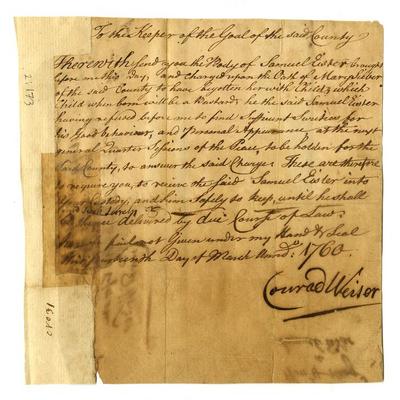 To the Keeper of the Goal of the said County
Therewith send you the Body of Samuel Eister brought
before me this Day, and charged upon the Oath of Mary
of the said County to have begotten her with Child, which
Child when born will be a Bastard, he the said Samuel Eister
having refused before me to find Sufficient Sureties for
his Good behaviour, and Personal Appearance at the next
general Quarter Sessions of the Peace, to be holden for the
Said County, to answer the said Charge. These are therefore
to require you, to receive the Said Samuel Eister into
Custody, and him Safely to keep, until he shall
be thence delivered by due Course of Law.
Given under my Hand & Seal
Day of March 1760.
Conrad Weiser